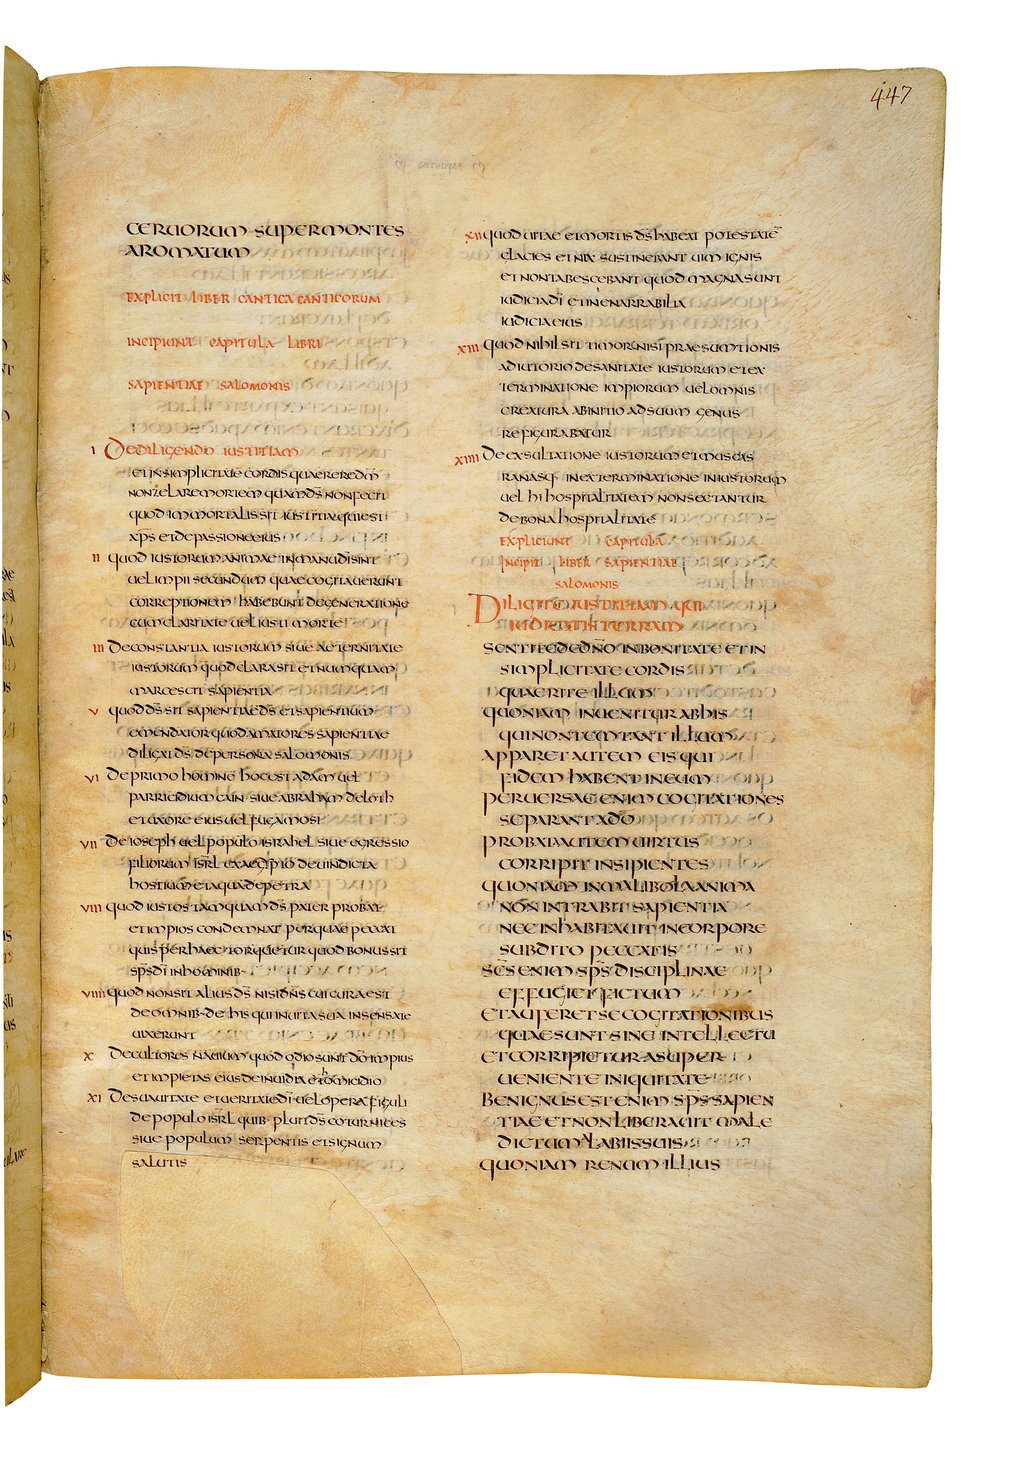 447
CERUORUM SUPER MONTES
AROMATUM
EXPLICIT LIBER CANTICA CANTICORUM
INCIPIUNT CAPITULA LIBRI
SAPIENTIAE SALOMONIS
I DE DILIGENDO IUSTITIAM
ET IN SIMPLICITATE CORDIS QUAERERE DM̅
NON ZELARE MORTEM QUAM DS̅ NON FECIT
QUOD IMMORTALIS SIT IUSTITIA QUIESI
XPS̅ ET DE PASSIONE EIUS
II QUOD IUSTORUM ANIMAE IN MANU DI̅ SINT
UEL IMPII SECUNDUM QUAE COGITAUERUNT
CORREPTIONEM HABEBUNT DE GENERATIONE
CUM CLARITATE UEL IUSTI MORTE
III DE CONSTANTIA IUSTORUM SIUE AETERNITATE
IUSTORUM QUOD CLARA SIT ET NUMQUAM
MARCESCIT SAPIENTIA
V QUOD DS̅ SIT SAPIENTIAE DS̅ ET SAPIENTIUM
EMENDATOR QUOD AMATORES SAPIENTIAE
DILIGAT DS̅ DE PERSONA SALOMONIS
VI DE PRIMO HOMINE HOC EST ADAM UEL
PARRICIDIUM CAIN SIUE ABRAHAM DE LOTH
ET UXORE EIUS UEL FUGAM OSI
VII DE IOSEPH UEL POPULO ISRAHEL SIUE EGRESSIO
FILIORUM ISRL̅ EX AEGYPTO DE UINDICTA
HOSTIUM ET AQUA DE PETRA
VIII QUOD IUSTOS TAMQUAM DS̅ PATER PROBAT
ET IMPIOS CONDEMNAT PER QUAE PECCAT
QUIS PER HAEC TORQUETUR QUOD BONUS SIT
SPS̅ DI̅ IN HOMINIB·
VIIII QUOD NON SIT ALIUS DS̅ NISI DN̅S CUI CURA EST
DE OMNIB· DE HIS QUI IN UITA SUA INSENSATE
UIXERUNT
X DE CULTORES NATIUM QUOD ODIO SUNT DO̅ IMPIUS
ET IMPIETAS EIUS DE INUIDIA ET HOMICIDIO
XI DE SUAUITATE ET UERITATE DI̅ UEL OPERA FIGULI
DE POPULO ISRL̅ QUIB· PLUIT DS̅ COTURNICES
SIUE POPULUM SERPENTIS ET SIGNUM
SALUTIS
XII QUOD UITAE ET MORTIS DS̅ HABEAT POTESTATE̅
GLACIES ET NIX SUSTINEBANT UIM IGNIS
ET NON TABESCEBANT QUOD MAGNA SUNT
IUDICIA DI̅ ET INENARRABILIA
IUDICIA EIUS
XIII QUOD NIHIL SIT TIMOR NISI PRAESUMTIONIS
ADIUTORIO DE SANITATE IUSTORUM ET EX
TERMINATIONE IMPIORUM UEL OMNIS
CREATURA AB INITIO AD SUUM GENUS
REFIGURABATUR
XIIII DE EXSULTATIONE IUSTORUM ET MUSCAS
RANASQ· IN EXTERMINATIONE INIUSTORUM
UEL HI HOSPITALITATEM NON SECTANTUR
DE BONA HOSPITALITATE
EXPLICIUNT CAPITULA
INCIPIT LIBER SAPIENTIAE
SALOMONIS
DILIGITE IUSTITIAM QUI
IUDICATIS TERRAM
SENTITE DE DN̅O IN BONITATE ET IN
SIMPLICITATE CORDIS
QUAERITE ILLUM
QUONIAM INUENITUR AB HIS
QUI NON TEMTANT ILLUM
APPARET AUTEM EIS QUI
FIDEM HABENT IN EUM
PERUERSAE ENIM COGITATIONES
SEPARANT A DO̅
PROBATA AUTEM UIRTUS
CORRIPIT INSIPIENTES
QUONIAM IN MALIBOLA ANIMA
NON INTRABIT SAPIENTIA
NEC INHABITAUIT IN CORPORE
SUBDITO PECCATIS
SCS̅ ENIM SPS̅ DISCIPLINAE
EFFUGIET FICTUM
ET AUFERET SE COGITATIONIBUS
QUAE SUNT SINE INTELLECTU
ET CORRIPIETUR A SUPER
UENIENTE INIQUITATE
BENIGNUS EST ENIM SPS̅ SAPIEN
TIAE ET NON LIBERAUIT MALE
DICTUM A LABIIS SUIS
QUONIAM RENUM ILLIUS